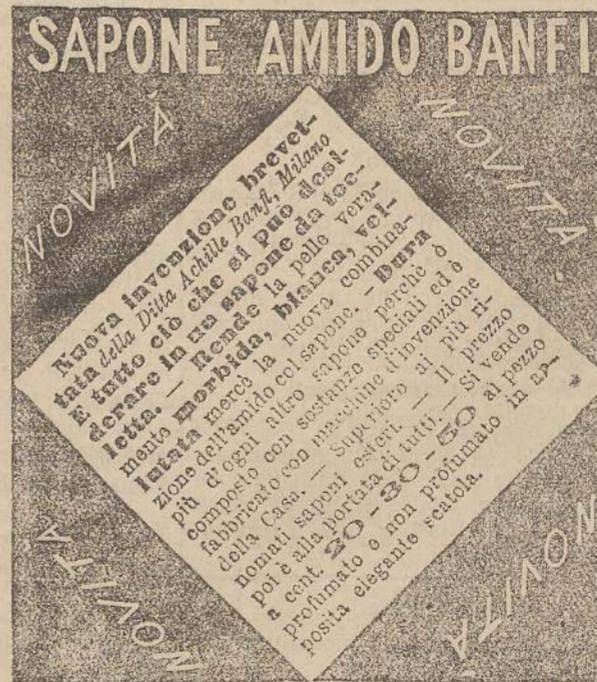 SAPONE AMIDO BANFI
NOVITÀ
NOVITÀ.
Nuova invenzione brevet-
tata della Ditta Achille Banfi, Milano
È tutto ciò che si può desi-
derare in un sapone da toe-
letta. — Rende la pelle vera-
mente morbida, bianca, vel-
lutata mercè la nuova combina-
zione dell'amido col sapone. — Dura
più d'ogni altro sapone perchè è
composto con sostanze speciali ed è
fabbricato con macchine d'invenzione
della Casa. — Superiore ai più ri-
nomati saponi esteri. — Il prezzo
poi è alla portata di tutti. — Si vende
a cent. 20-30-50 al pezzo
profumato e non profumato in ap-
posita elegante scatola.
NOVITÀ
NOVITÀ